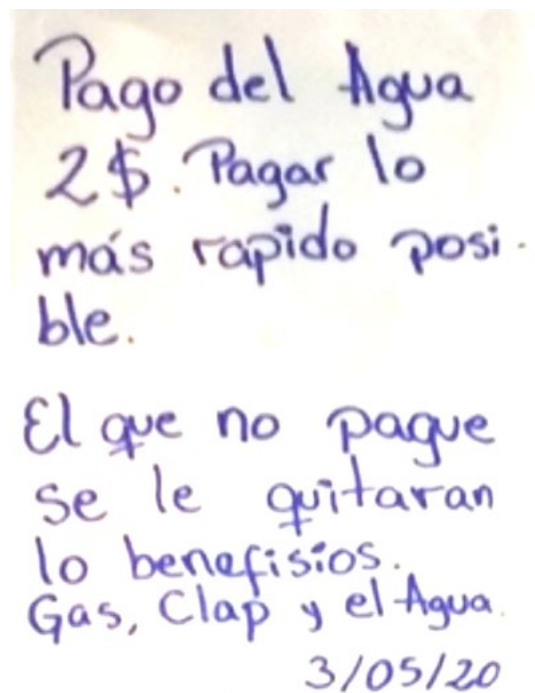 Pago del Agua
2$. Pagar lo
más rapido posi-
ble.
El que no pague
se le quitaran
lo benefisios.
Gas, Clap y el Agua.
3/05/20